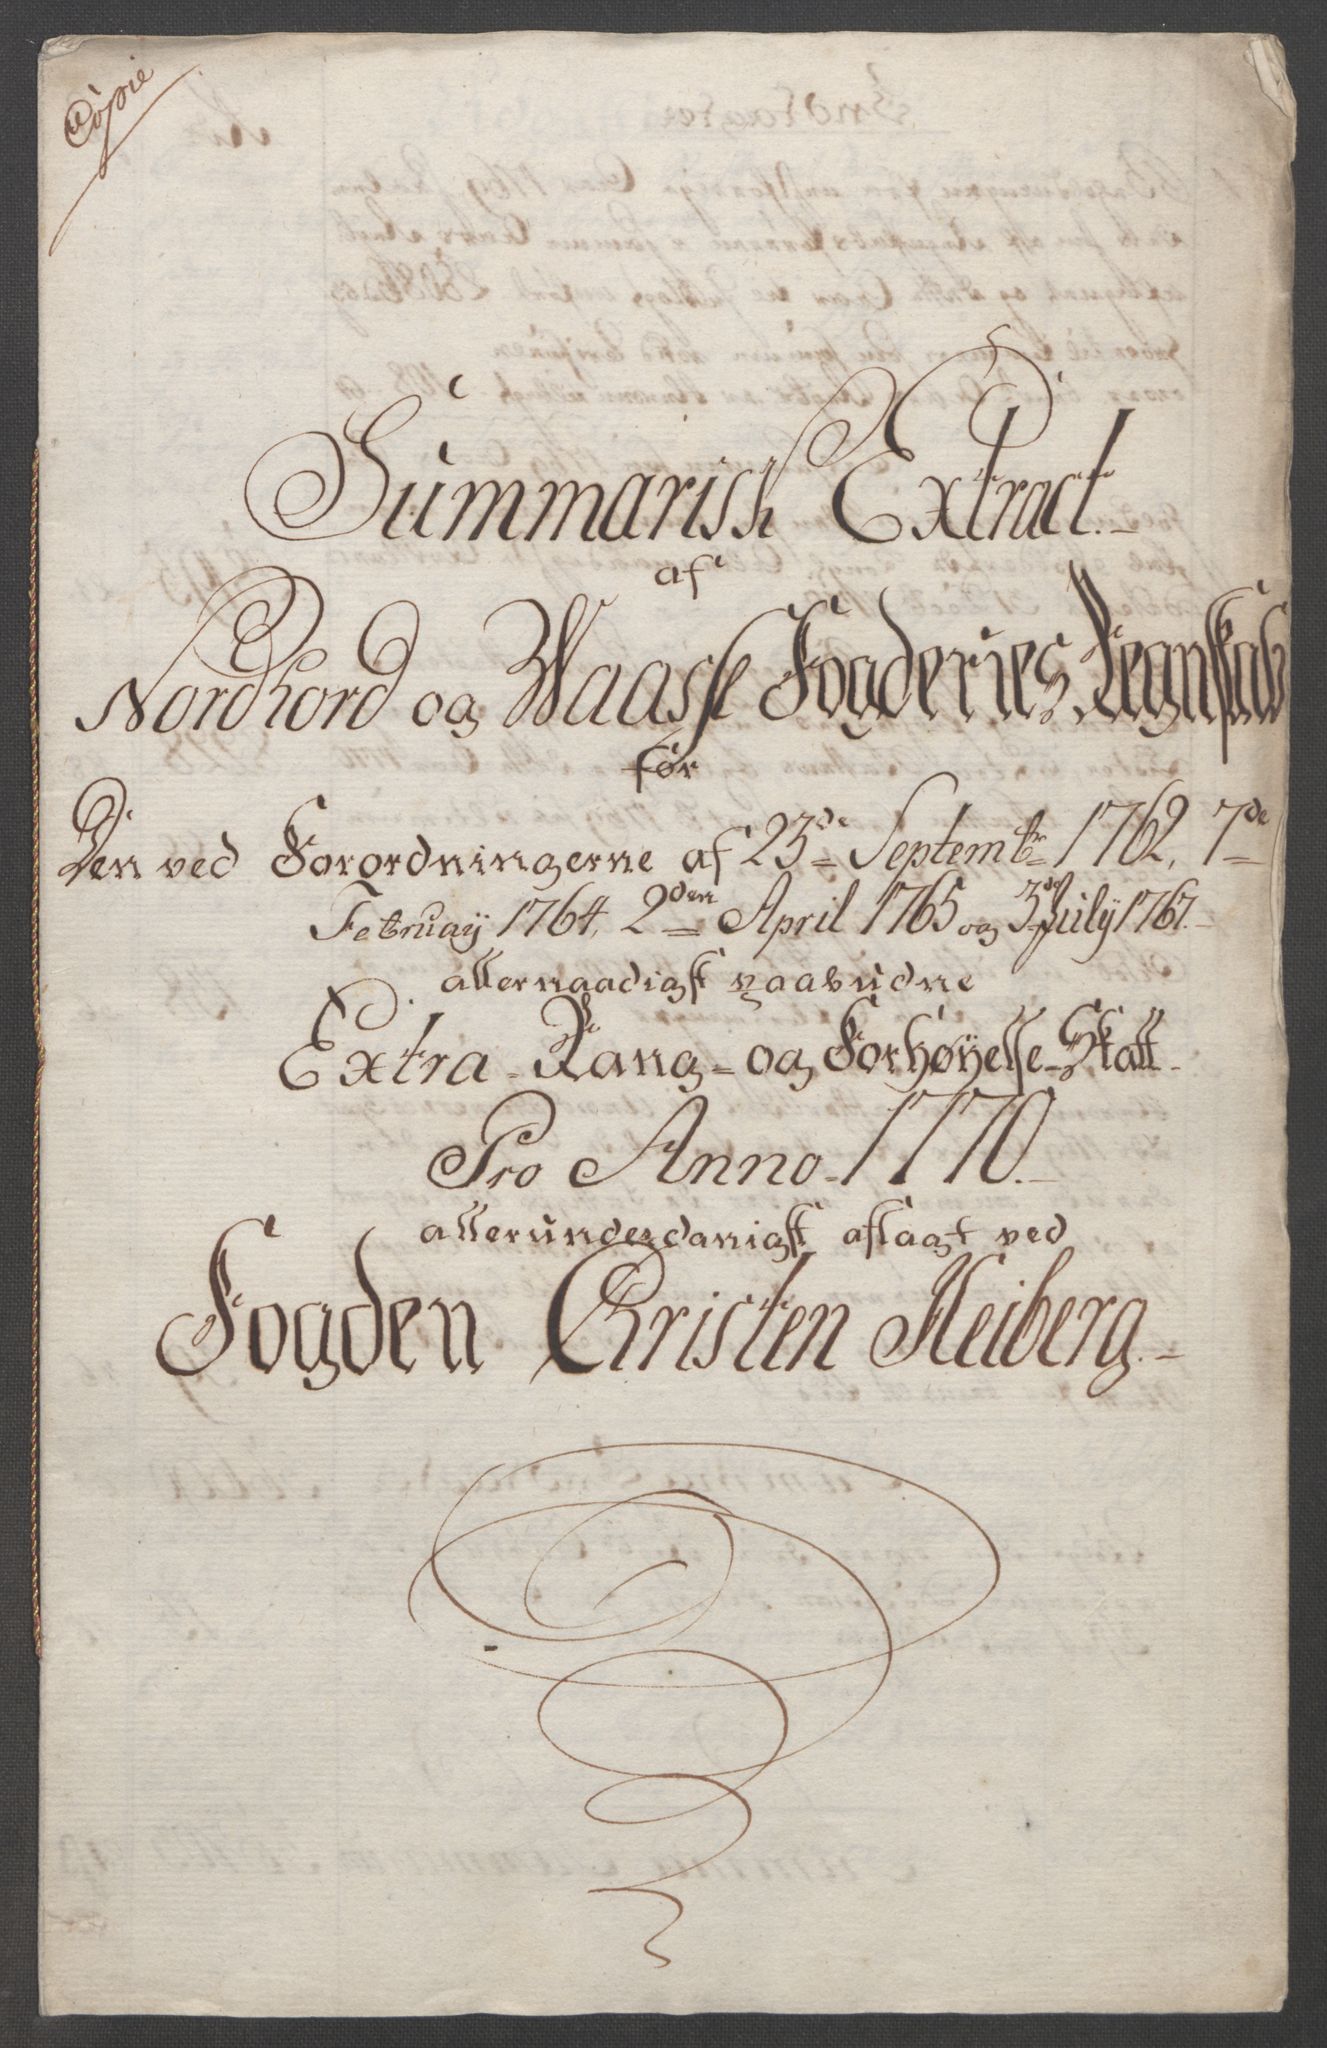 Copie
Summarisk Extract
af
Nordhord og Waasse Fogderies Regnskab
før
Den ved Forordningerne af 23de Septembr 1762, 7de
Februay 1764, 2den April 1765 og 3de July 1767.
allernaadigst paabudne
Extra- Rang- og Forhøyelse-Skatt
Pro Anno 1770.
allerunderdanigst aflagt ved
Fogden Christen Heiberg.